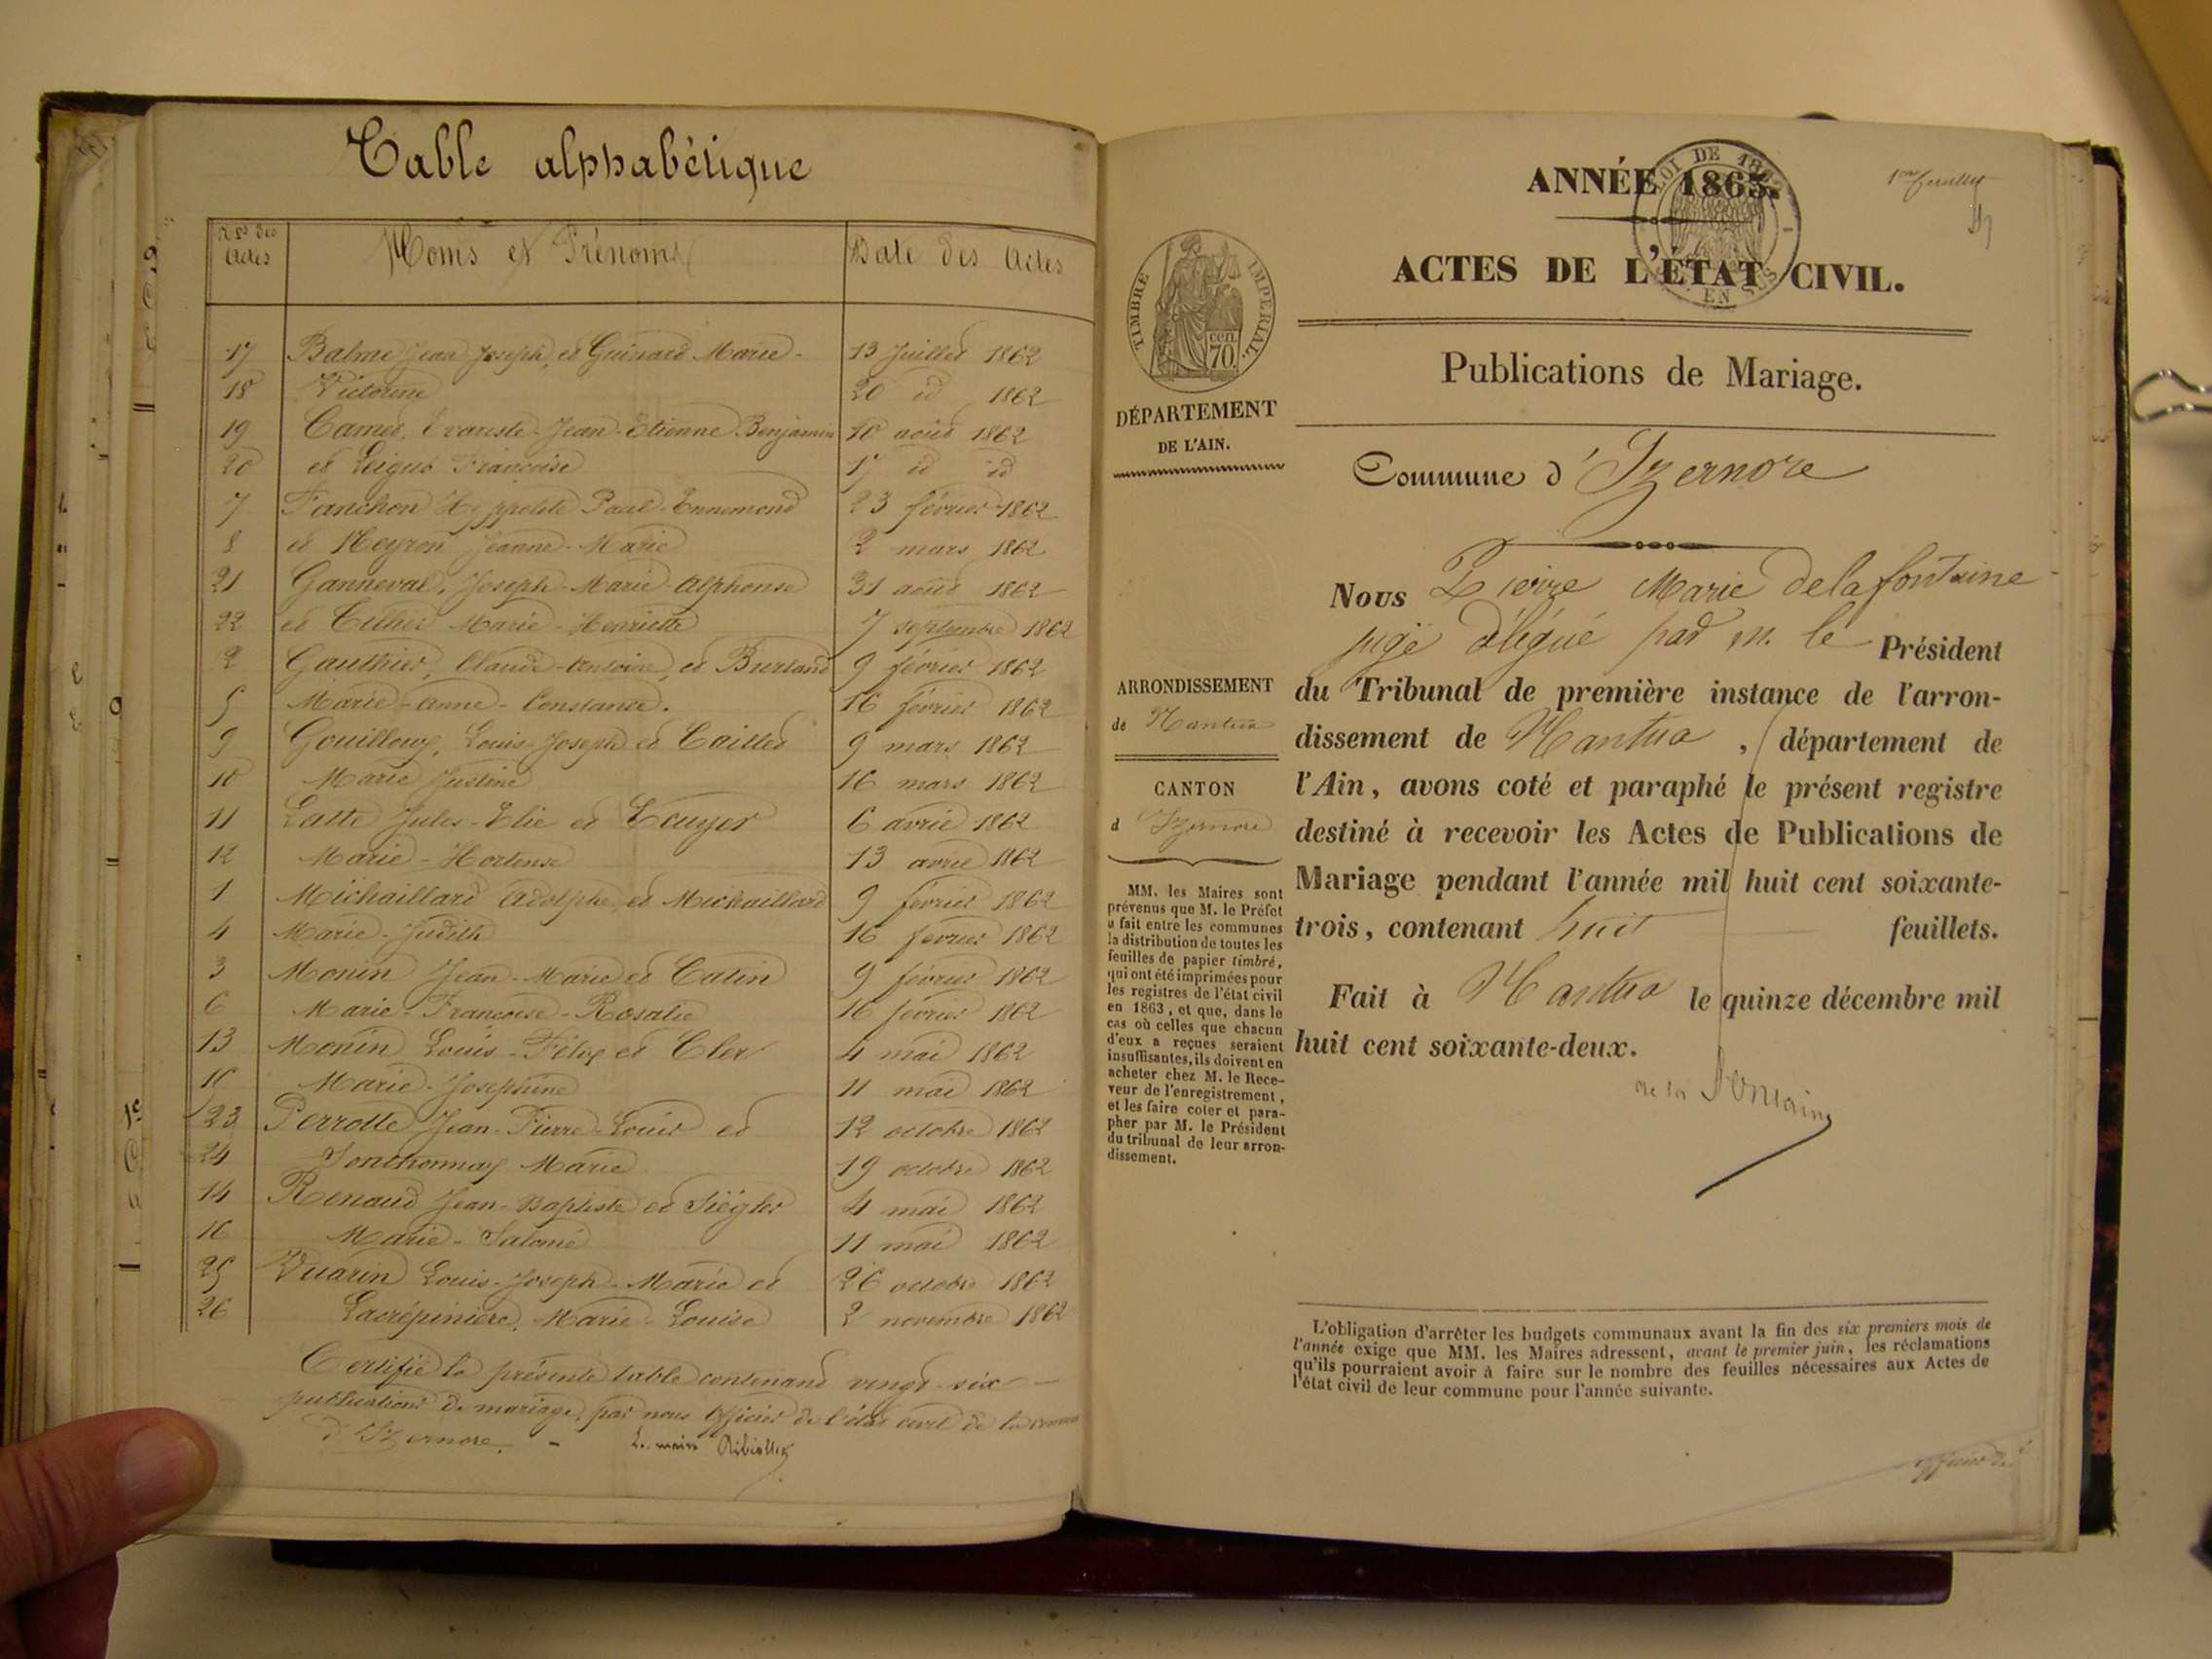 Table alphabétique
Nos des Actes
Noms et Prénoms
Date des Actes
17 Balme Jean Joseph, et Guinard Marie- 13 Juillet 1862
18 Victorine 20 id 1862
19 Camet, Evariste-Jean-Etienne-Benjamin 10 août 1862
20 et Françoise 17 id id
7 Fanchon Hyppolite Paul-Ennemond 23 février 1862
8 et Neyron Jeanne-Marie 2 mars 1862
21 Ganneval, Joseph-Marie-Alphonse 31 août 1862
22 et Marie-Henriette 7 septembre 1862
2 Gauthier, Claude-Antoine, et Burland 9 février 1862
5 Marie-Anne-Constance. 16 février 1862
9 Gouilloux, Louis-Joseph et Caillet 9 mars 1862
10 Marie Justine 16 mars 1862
11 Latte Jules-Elie et Ecuyer 6 avril 1862
12 Marie-Hortense 13 avril 1862
1 Michaillard Adolphe, et Michaillard 9 février 1862
4 Marie-Judith 16 février 1862
3 Monin Jean-Marie et Catin 9 février 1862
6 Marie-Françoise-Rosalie 16 février 1862
13 Monin Louis-Félix et Cler 4 mai 1862
15 Marie-Joséphine 11 mai 1862
23 Perrotte Jean-Pierre-Louis et 12 octobre 1862
24 Jonthonnay Marie 19 octobre 1862
14 Renaud Jean-Baptiste et Siégler 4 mai 1862
16 Marie-Salomé 11 mai 1862
25 Vuarin Louis-Joseph-Marie et 26 octobre 1862
26 Lacrépinière, Marie-Louise 2 novembre 1862
Certifié la présente table contenant vingt-six
publications de mariage, par nous officier de l'état civil de la
d'Izernore. - Le maire
1er feuillet
ANNÉE 1863.
LOI DE
EN SUS
ACTES DE L'ÉTAT CIVIL.
Publications de Mariage.
TIMBRE IMPÉRIAL.
cen. 70.
DÉPARTEMENT
DE L'AIN.
ARRONDISSEMENT
de Nantua
CANTON
d'Izernore
MM. les Maires sont
prévenus que M. le Préfet
a fait entre les communes
la distribution de toutes les
feuilles de papier timbré,
qui ont été imprimées pour
les registres de l'état civil
en 1863, et que, dans le
cas où celles que chacun
d'eux a reçues seraient
insuffisantes, ils doivent en
acheter chez M. le Rece-
veur de l'enregistrement,
et les faire coter et para-
pher par M. le Président
du tribunal de leur arron-
dissement.
Commune d'Izernore
Nous Pierre Marie delafontaine
juge délégué par M. le Président
du Tribunal de première instance de l'arron-
dissement de Nantua, département de
l'Ain, avons coté et paraphé le présent registre
destiné à recevoir les Actes de Publications de
Mariage pendant l'année mil huit cent soixante-
trois, contenant huit feuillets.
Fait à Nantua le quinze décembre mil
huit cent soixante-deux.
de la Fontaine
L'obligation d'arrêter les budgets communaux avant la fin des six premiers mois de
l'année exige que MM. les Maires adressent, avant le premier juin, les réclamations
qu'ils pourraient avoir à faire sur le nombre des feuilles nécessaires aux Actes de
l'état civil de leur commune pour l'année suivante.